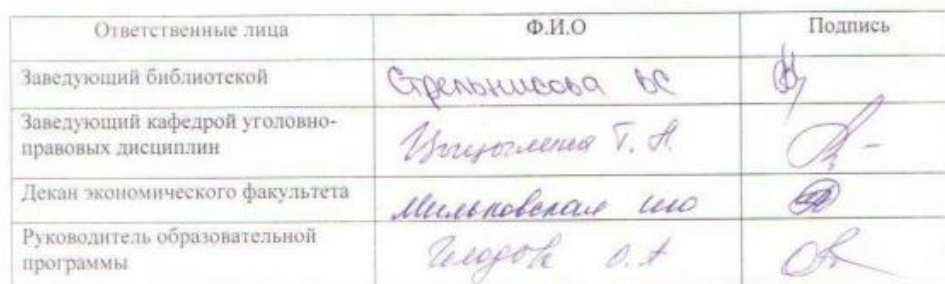 Ответственные лица Ф.И.О Подпись
Заведующий библиотекой Стрельникова ВС
Заведующий кафедрой уголовно-
правовых дисциплин Т. А.
Декан экономического факультета Мильковская
Руководитель образовательной
программы О.А